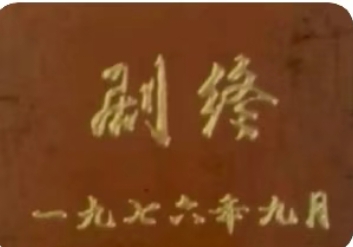 剧终
一九七六年九月